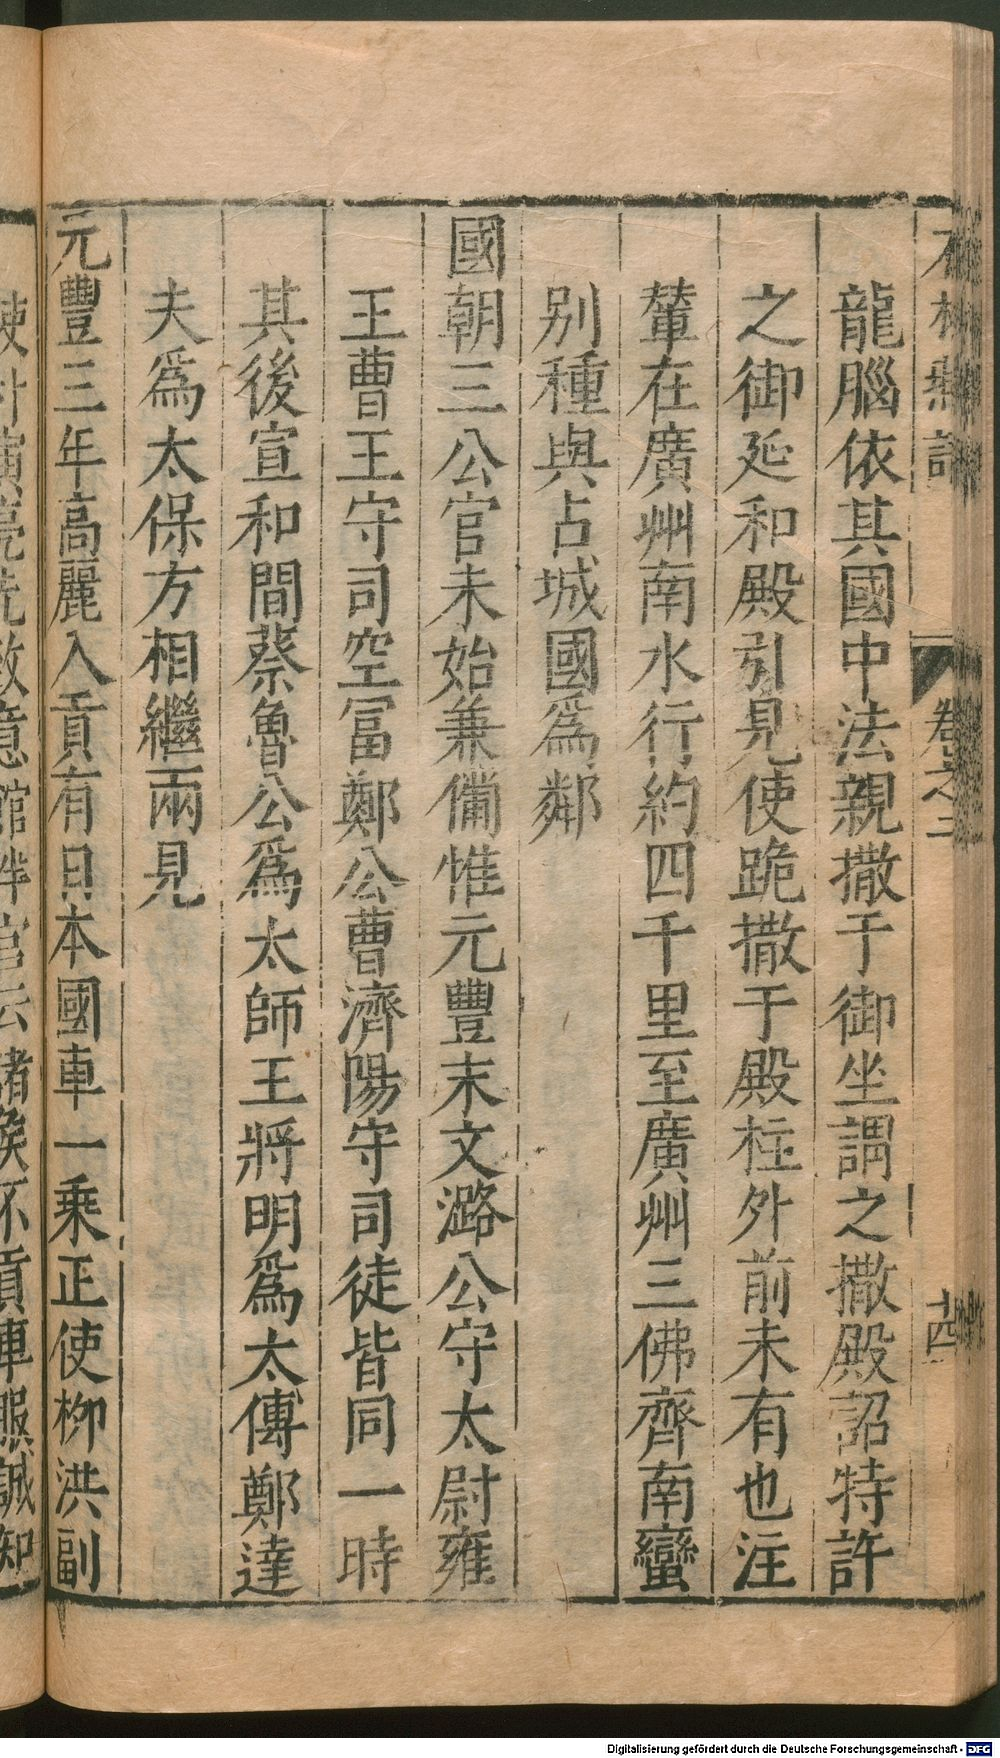 石林燕語
卷之二
十四
龍腦依其國中法親撒于御坐謂之撒殿詔特許
之御延和殿引見使跪撒于殿柱外前未有也注
輦在廣州南水行約四千里至廣州三佛齊南蠻
别種與占城國爲鄰
國朝三公官未始兼備惟元豐末文潞公守太尉雍
王曹王守司空冨鄭公曹濟陽守司徒皆同一時
其後宣和間蔡魯公爲太師王將明爲太傅鄭達
夫爲太保方相繼兩見
元豐三年高麗入貢有日本國車一乘正使柳洪副
意館伴官云諸侯不貢車服誠知
Digitalisierung gefördert durch die Deutsche Forschungsgemeinschaft - DFG